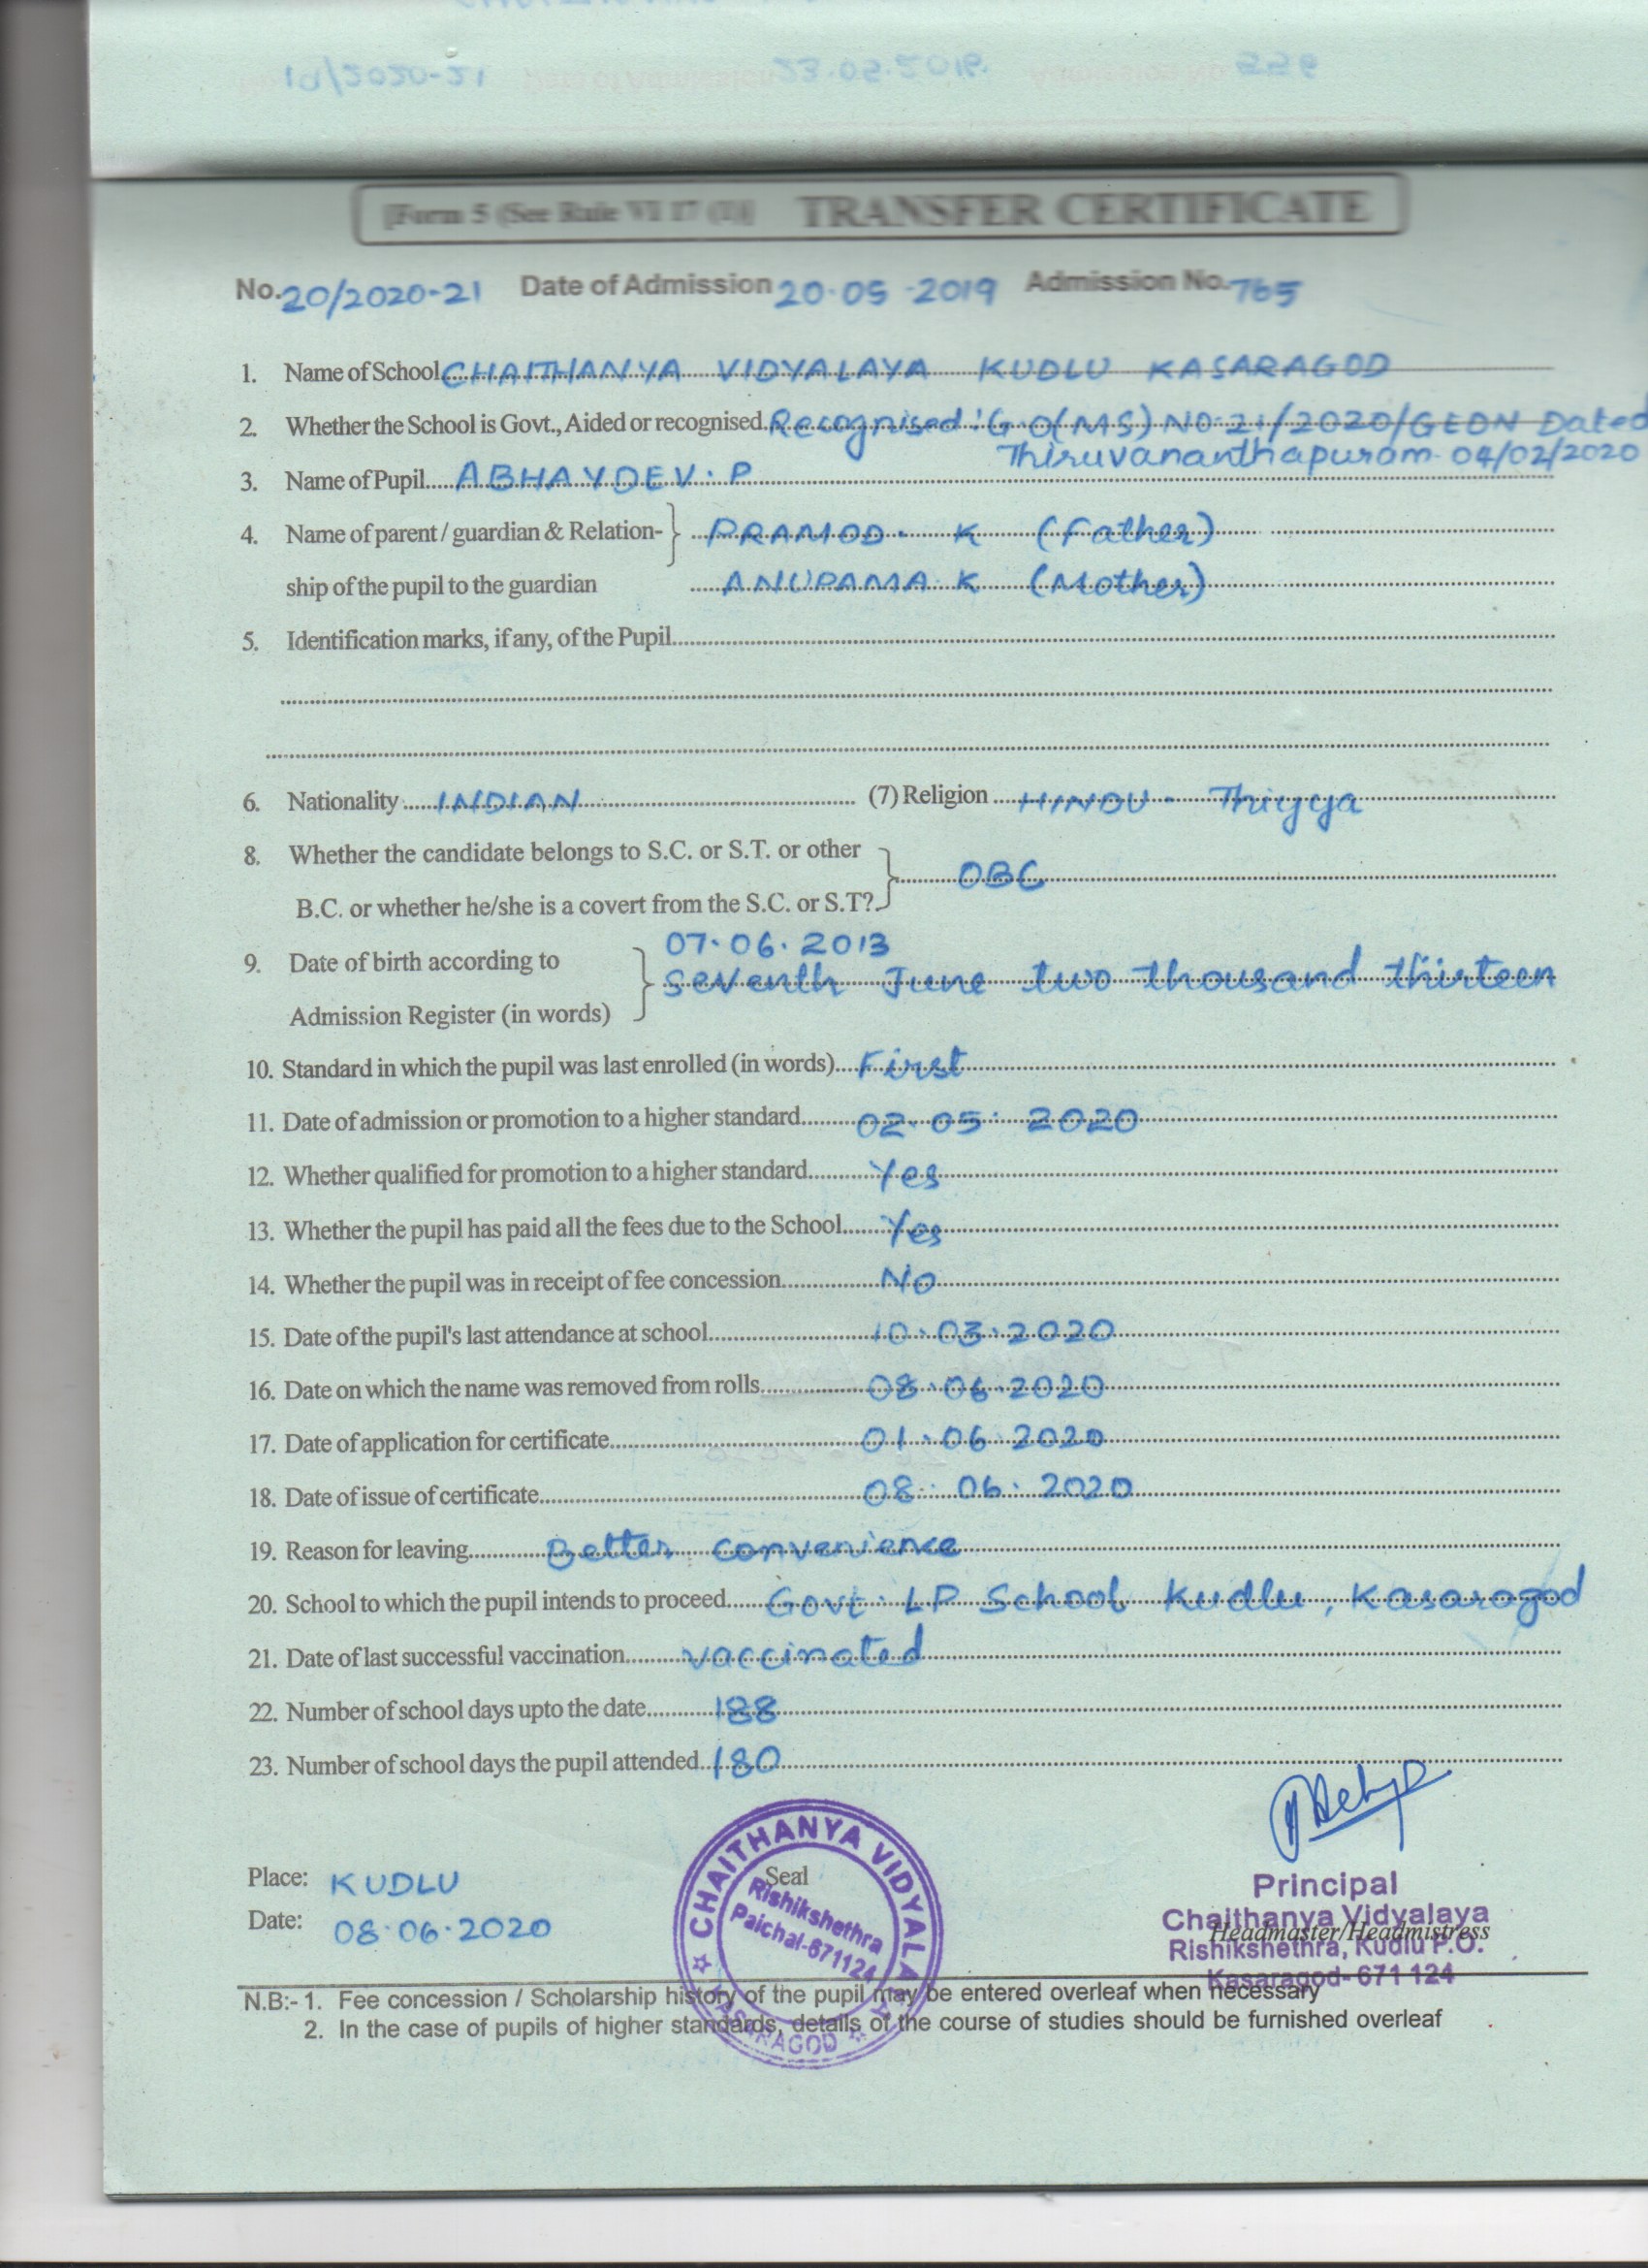 [Form 5 (See Rule VI 17 (1)] TRANSFER CERTIFICATE
No. 20/2020-21 Date of Admission 20-05-2019 Admission No. 765
1. Name of School CHAITHANYA VIDYALAYA KUDLU KASARAGOD
2. Whether the School is Govt., Aided or recognised. Recognised: G.O(MS) NO:21/2020/GEDN Dated
Thiruvananthapuram 04/02/2020
3. Name of Pupil ABHAYDEV. P
4. Name of parent / guardian & Relation- PRAMOD. K (Father)
ship of the pupil to the guardian ANUPAMA K (Mother)
5. Identification marks, if any, of the Pupil
6. Nationality INDIAN (7) Religion HINDU - Thiyya
8. Whether the candidate belongs to S.C. or S.T. or other
OBC
B.C. or whether he/she is a covert from the S.C. or S.T?
07.06.2013
9. Date of birth according to Seventh June two thousand thirteen
Admission Register (in words)
10. Standard in which the pupil was last enrolled (in words) First
11. Date of admission or promotion to a higher standard 02.05.2020
12. Whether qualified for promotion to a higher standard Yes
13. Whether the pupil has paid all the fees due to the School Yes
14. Whether the pupil was in receipt of fee concession No
15. Date of the pupil's last attendance at school 10.03.2020
16. Date on which the name was removed from rolls 08.06.2020
17. Date of application for certificate 01.06.2020
18. Date of issue of certificate 08.06.2020
19. Reason for leaving Better convenience
20. School to which the pupil intends to proceed Govt. LP School Kudlu, Kasaragod
21. Date of last successful vaccination vaccinated
22. Number of school days upto the date 188
23. Number of school days the pupil attended 180
Place: KUDLU
Date: 08.06.2020
Seal
CHAITHANYA VIDYALAYA
Rishikshethra
Paichal-671124
KASARAGOD
Principal
Chaithanya Vidyalaya
Headmaster/Headmistress
Rishikshethra, Kudlu P.O.
Kasaragod- 671 124
N.B:- 1. Fee concession / Scholarship history of the pupil may be entered overleaf when necessary
2. In the case of pupils of higher standards, details of the course of studies should be furnished overleaf